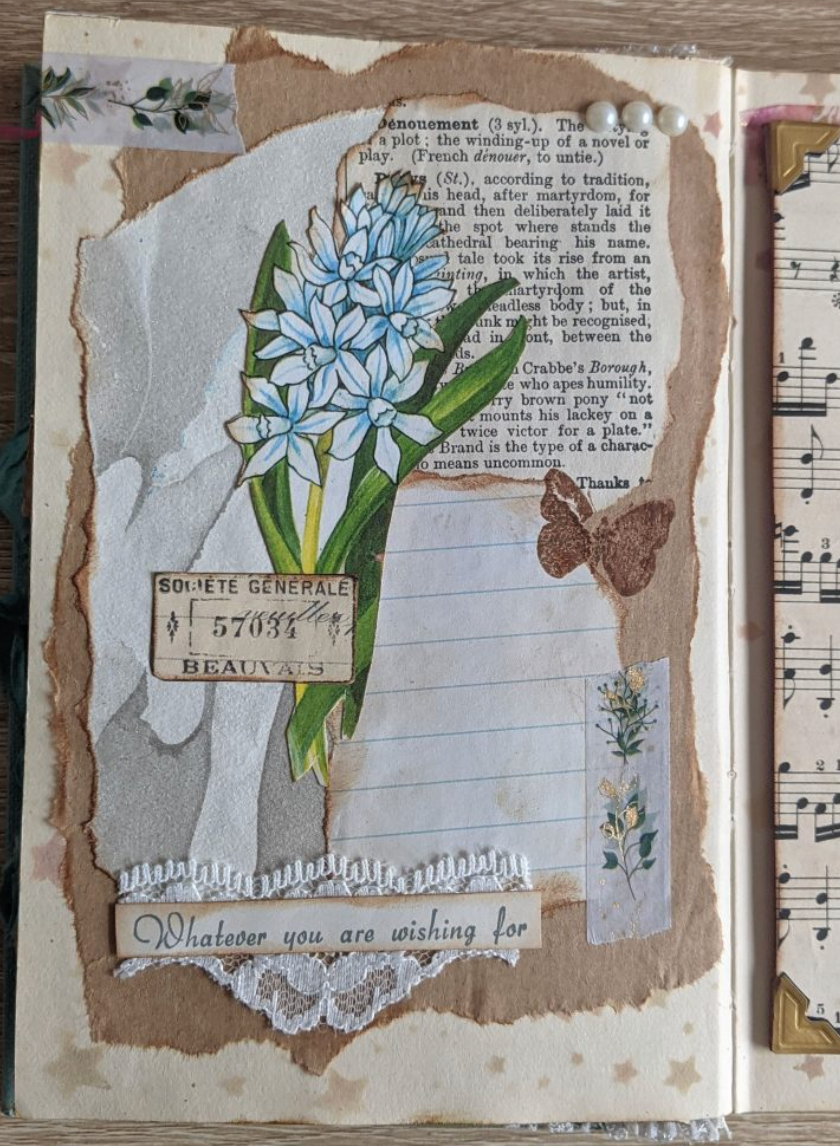 s.
Dénouement (3 syl.). The
a plot; the winding-up of a novel or
play. (French dénouer, to untie.)
(St.), according to tradition,
his head, after martyrdom, for
and then deliberately laid it
the spot where stands the
cathedral bearing his name.
tale took its rise from an
in which the artist,
martyrdom of the
headless body; but, in
might be recognised,
in between the
Crabbe's Borough,
who apes humility.
brown pony "not
mounts his lackey on a
twice victor for a plate."
Brand is the type of a charac-
no means uncommon.
Thanks
SOCIÉTÉ GÉNÉRALE
57034
BEAUVAIS
Whatever you are wishing for
7
1
3
2 1
5 1